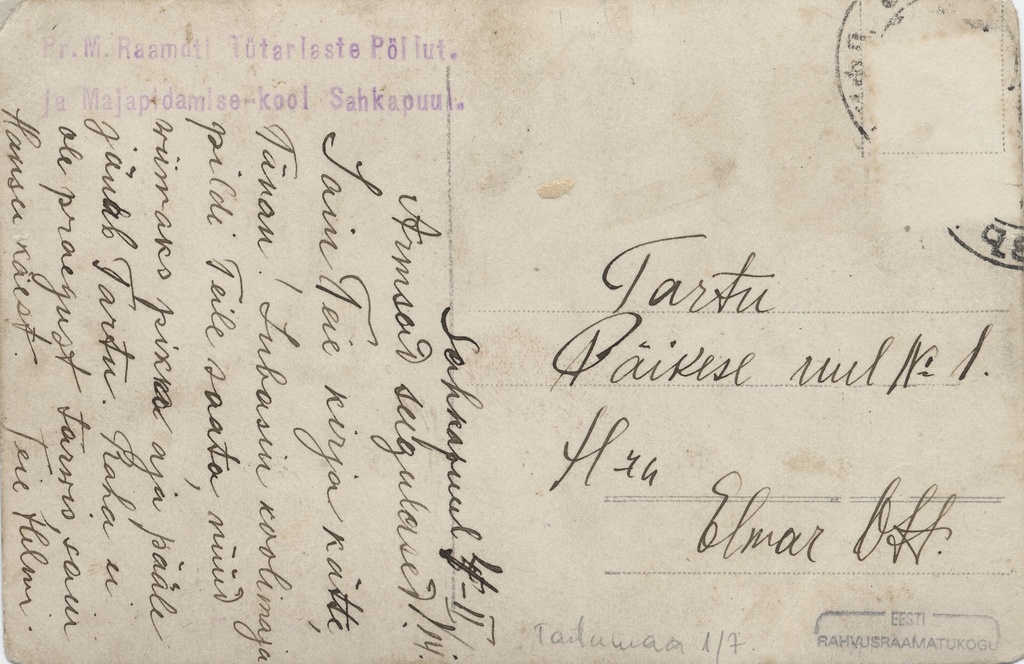 Pr. M. Raamoti Tütarlaste Põllut.
ja Majapidamise-kool Sahkapuul.
Sahkapuul
Armsad sugulased!
Sain Teie kirja kätte,
Tänan! Lubasin koolimaja
pildi Teile saata, nüüd
viimaks pikka aja pääle
jäuab Tartu. Raha ei
ole praegust tarvis sain
Hansu käest. Teie Helmi.
Tartu
Päikese uul № 1.
Hra
Elmar Ott.
Tartumaa 1/7.
EESTI
RAHVUSRAAMATUKOGU